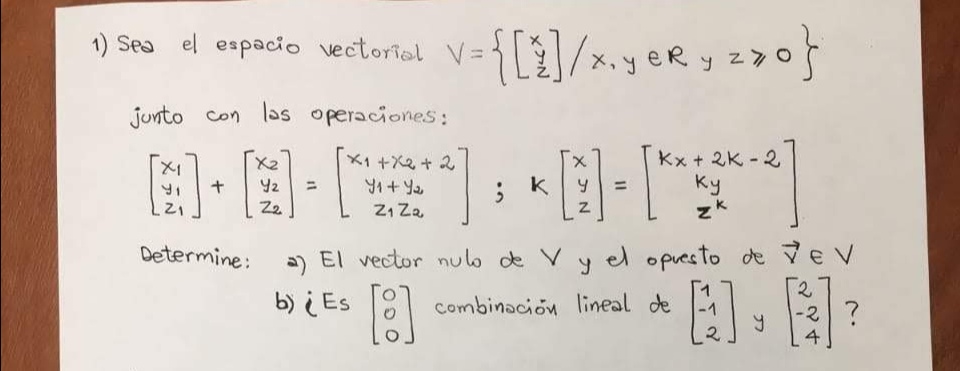 1) Sea el espacio vectorial V = { [x y z] / x, y e R y z ⩾ 0 }
junto con las operaciones:
[x1 y1 z1] + [x2 y2 z2] = [x1 + x2 + 2 y1 + y2 z1 z2] ; k [x y z] = [kx + 2k - 2 ky z^k]
Determine: a) El vector nulo de V y el opuesto de v⃗ ∈ V
b) ¿Es [0 0 0] combinación lineal de [1 -1 2] y [2 -2 4] ?